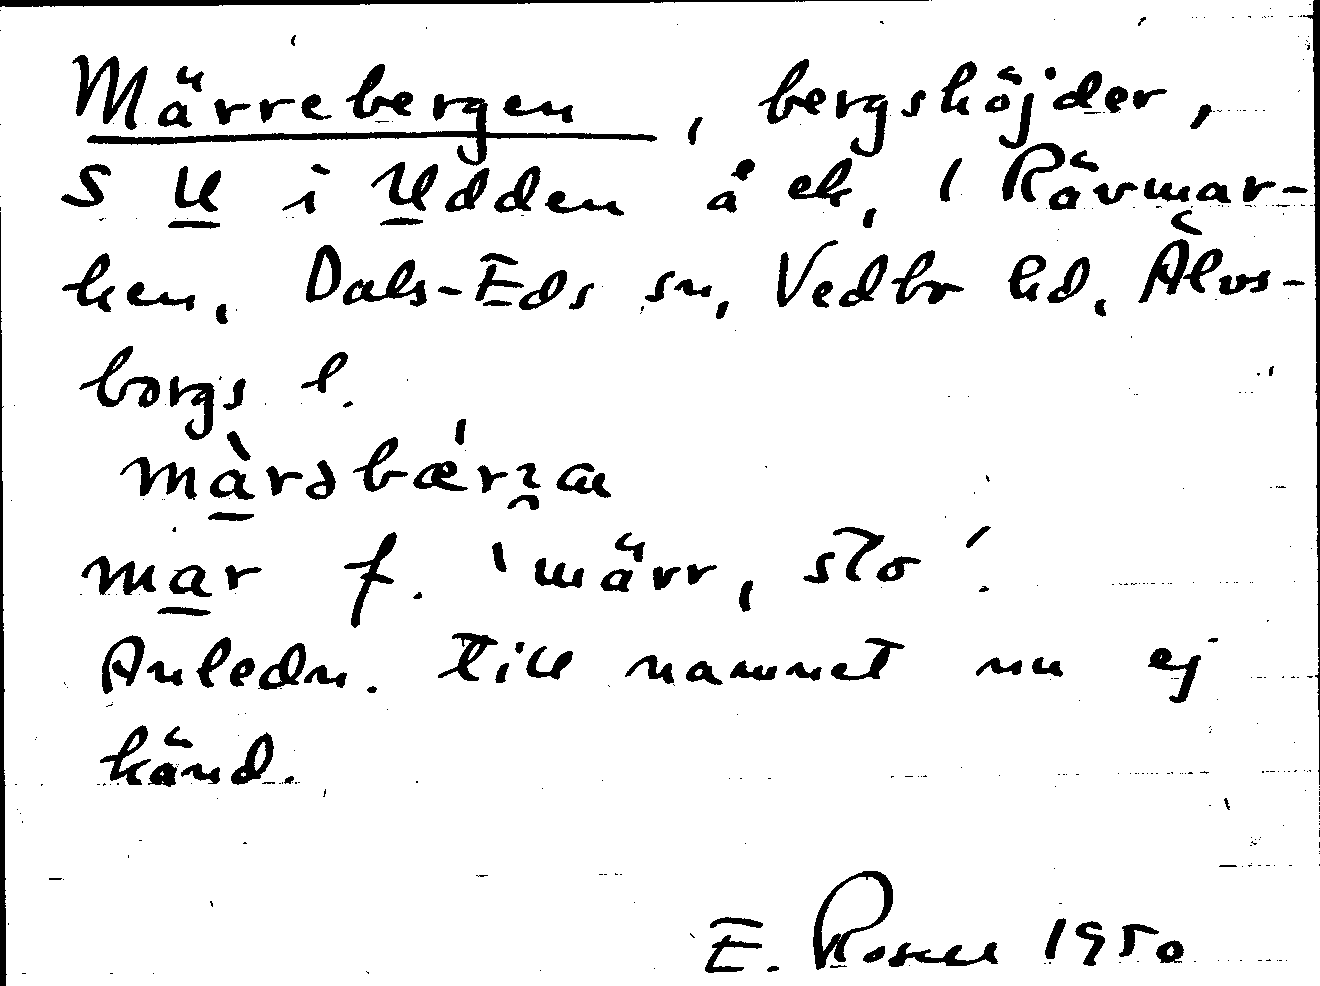 Märrebergen, bergshöjder,
S U i Udden å ek, 1 Rävmar-
ken, Dals-Eds sn, Vedbo hd, Älvs-
borgs l.
mar f. 'märr, sto'.
Anledn. till namnet nu ej
känd.
E. Rosell 1950